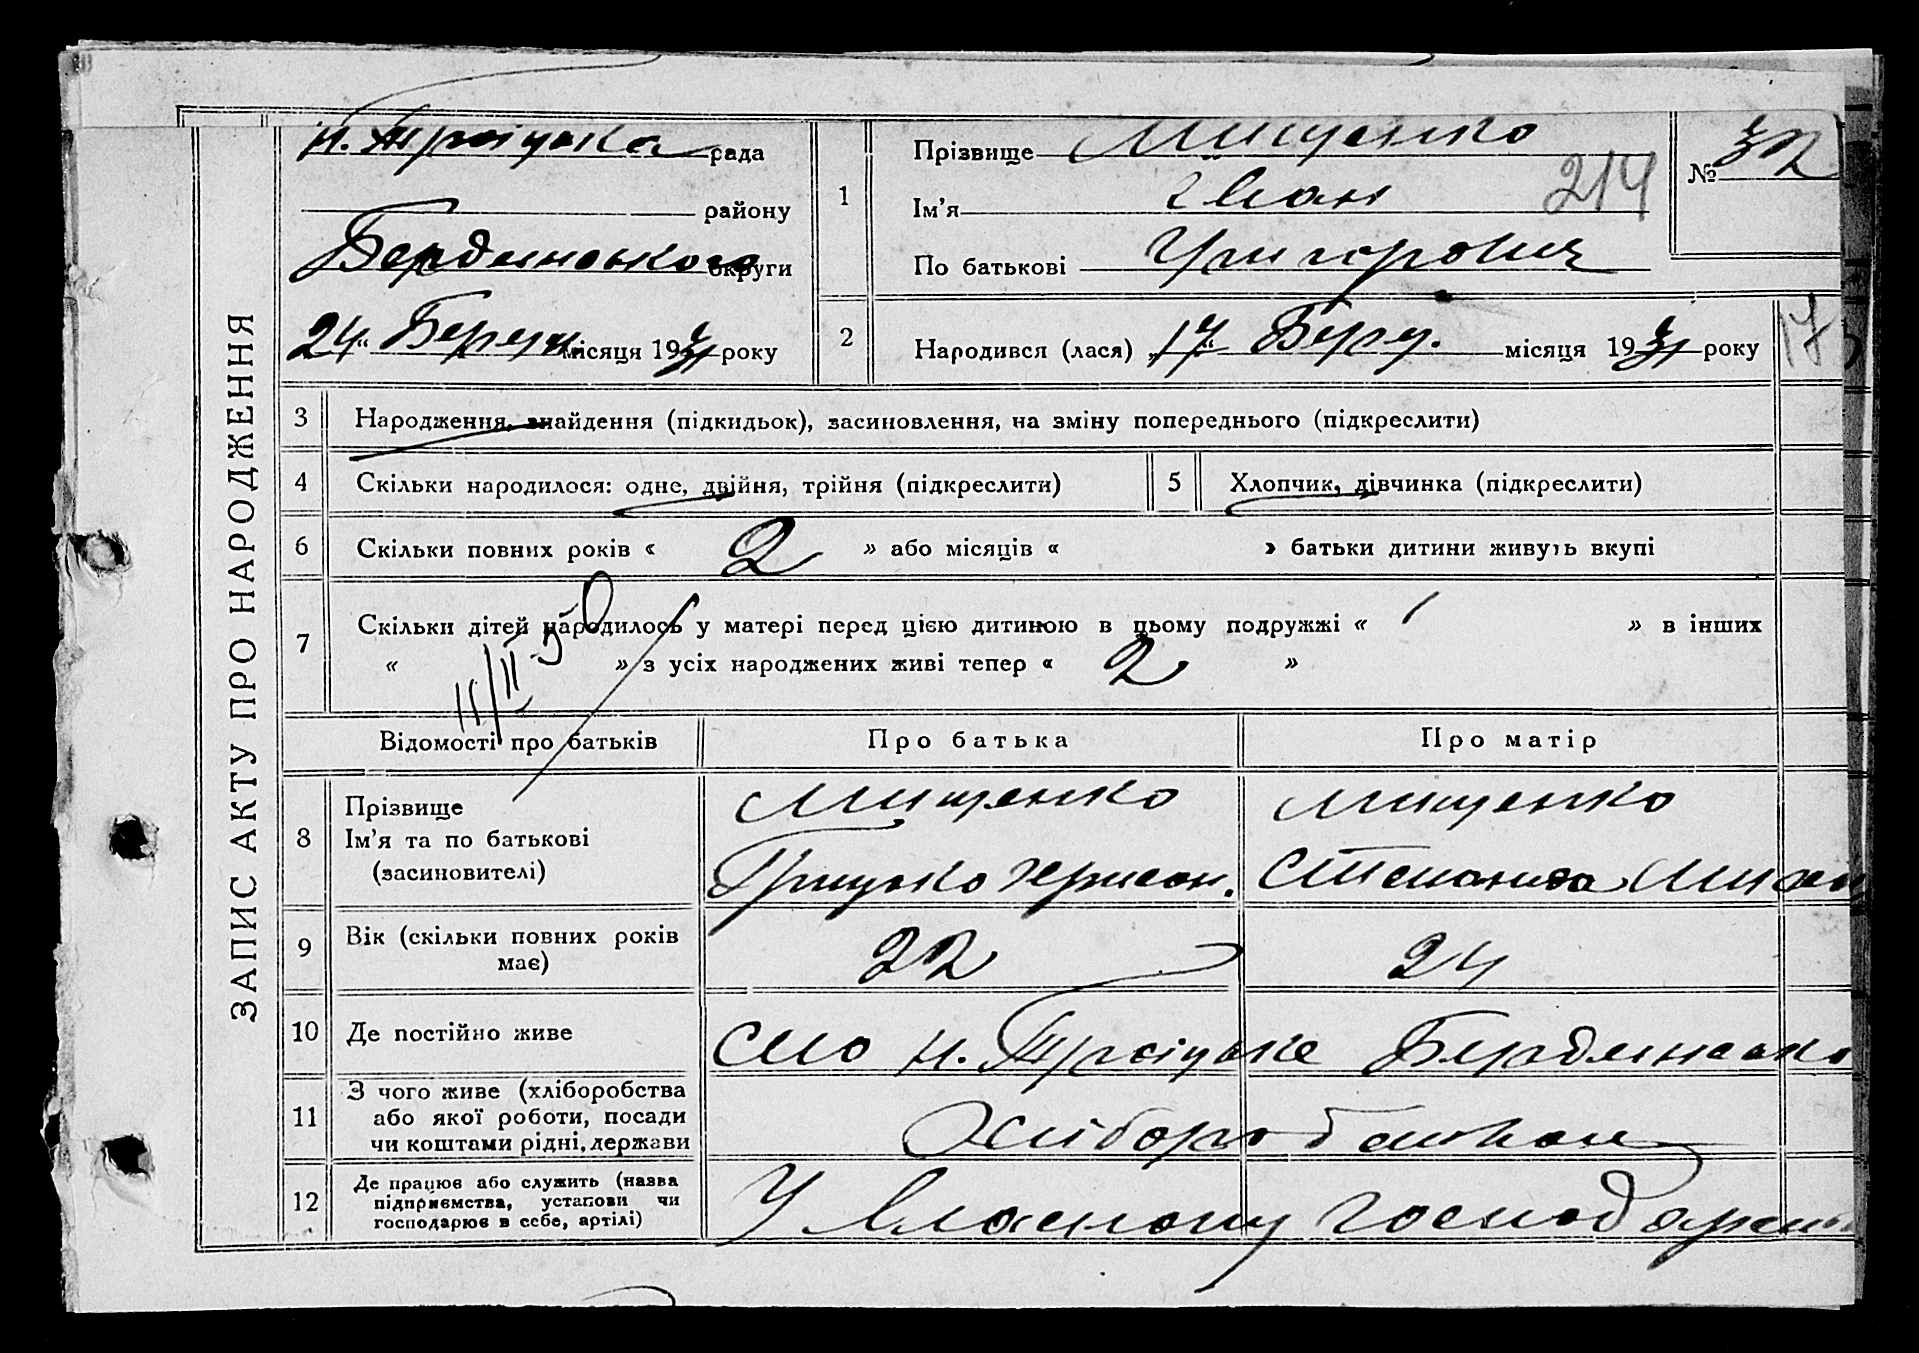 ЗАПИС АКТУ ПРО НАРОДЖЕННЯ
Н. Троіцька рада
району
Бердянського округи
24 " Берез. місяця 1931 року
1
Прізвище Мищенко
Ім'я Іван 214
По батькові Григорович
№ 32
2
Народився (лася) „ 17 " Берез. місяця 1931 року 17
3 Народження, знайдення (підкидьок), засиновлення, на зміну попереднього (підкреслити)
4 Скільки народилося: одне, двійня, трійня (підкреслити)
5 Хлопчик, дівчинка (підкреслити)
6 Скільки повних років « 2 » або місяців « » батьки дитини живуть вкупі
7 Скільки дітей народилось у матері перед цією дитиною в цьому подружжі « 1 » в інших
« » з усіх народжених живі тепер « 2 »
11/II 50
Відомості про батьків Про батька Про матір
8 Прізвище
Ім'я та по батькові
(засиновителі)
Мищенко
Грицько Хрисан.
Мищенко
Степанида Михай
9 Вік (скільки повних років
має)
22 24
10 Де постійно живе село Н. Троіцьке Бердянсько
11 З чого живе (хліборобства
або якої роботи, посади
чи коштами рідні, держави
Хліборобством
12 Де працює або служить (назва
підприємства, установи чи
господарює в себе, артілі)
У власному господарст